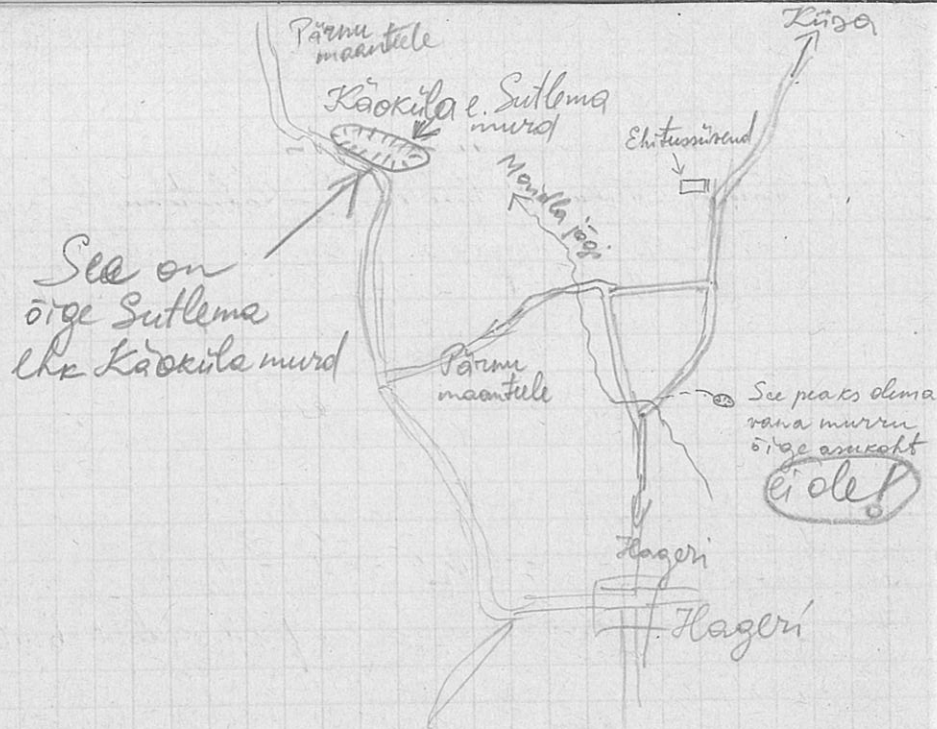 Pärnu
maanteele
Kiisa
Käoküla e. Sutlema
murd
Ehitussüvend
jõgi
See on
õige Sutlema
ehk Käoküla murd
Pärnu
maanteele
See peaks olema
vana murru
õige asukoht
ei ole!
Hageri
Hageri